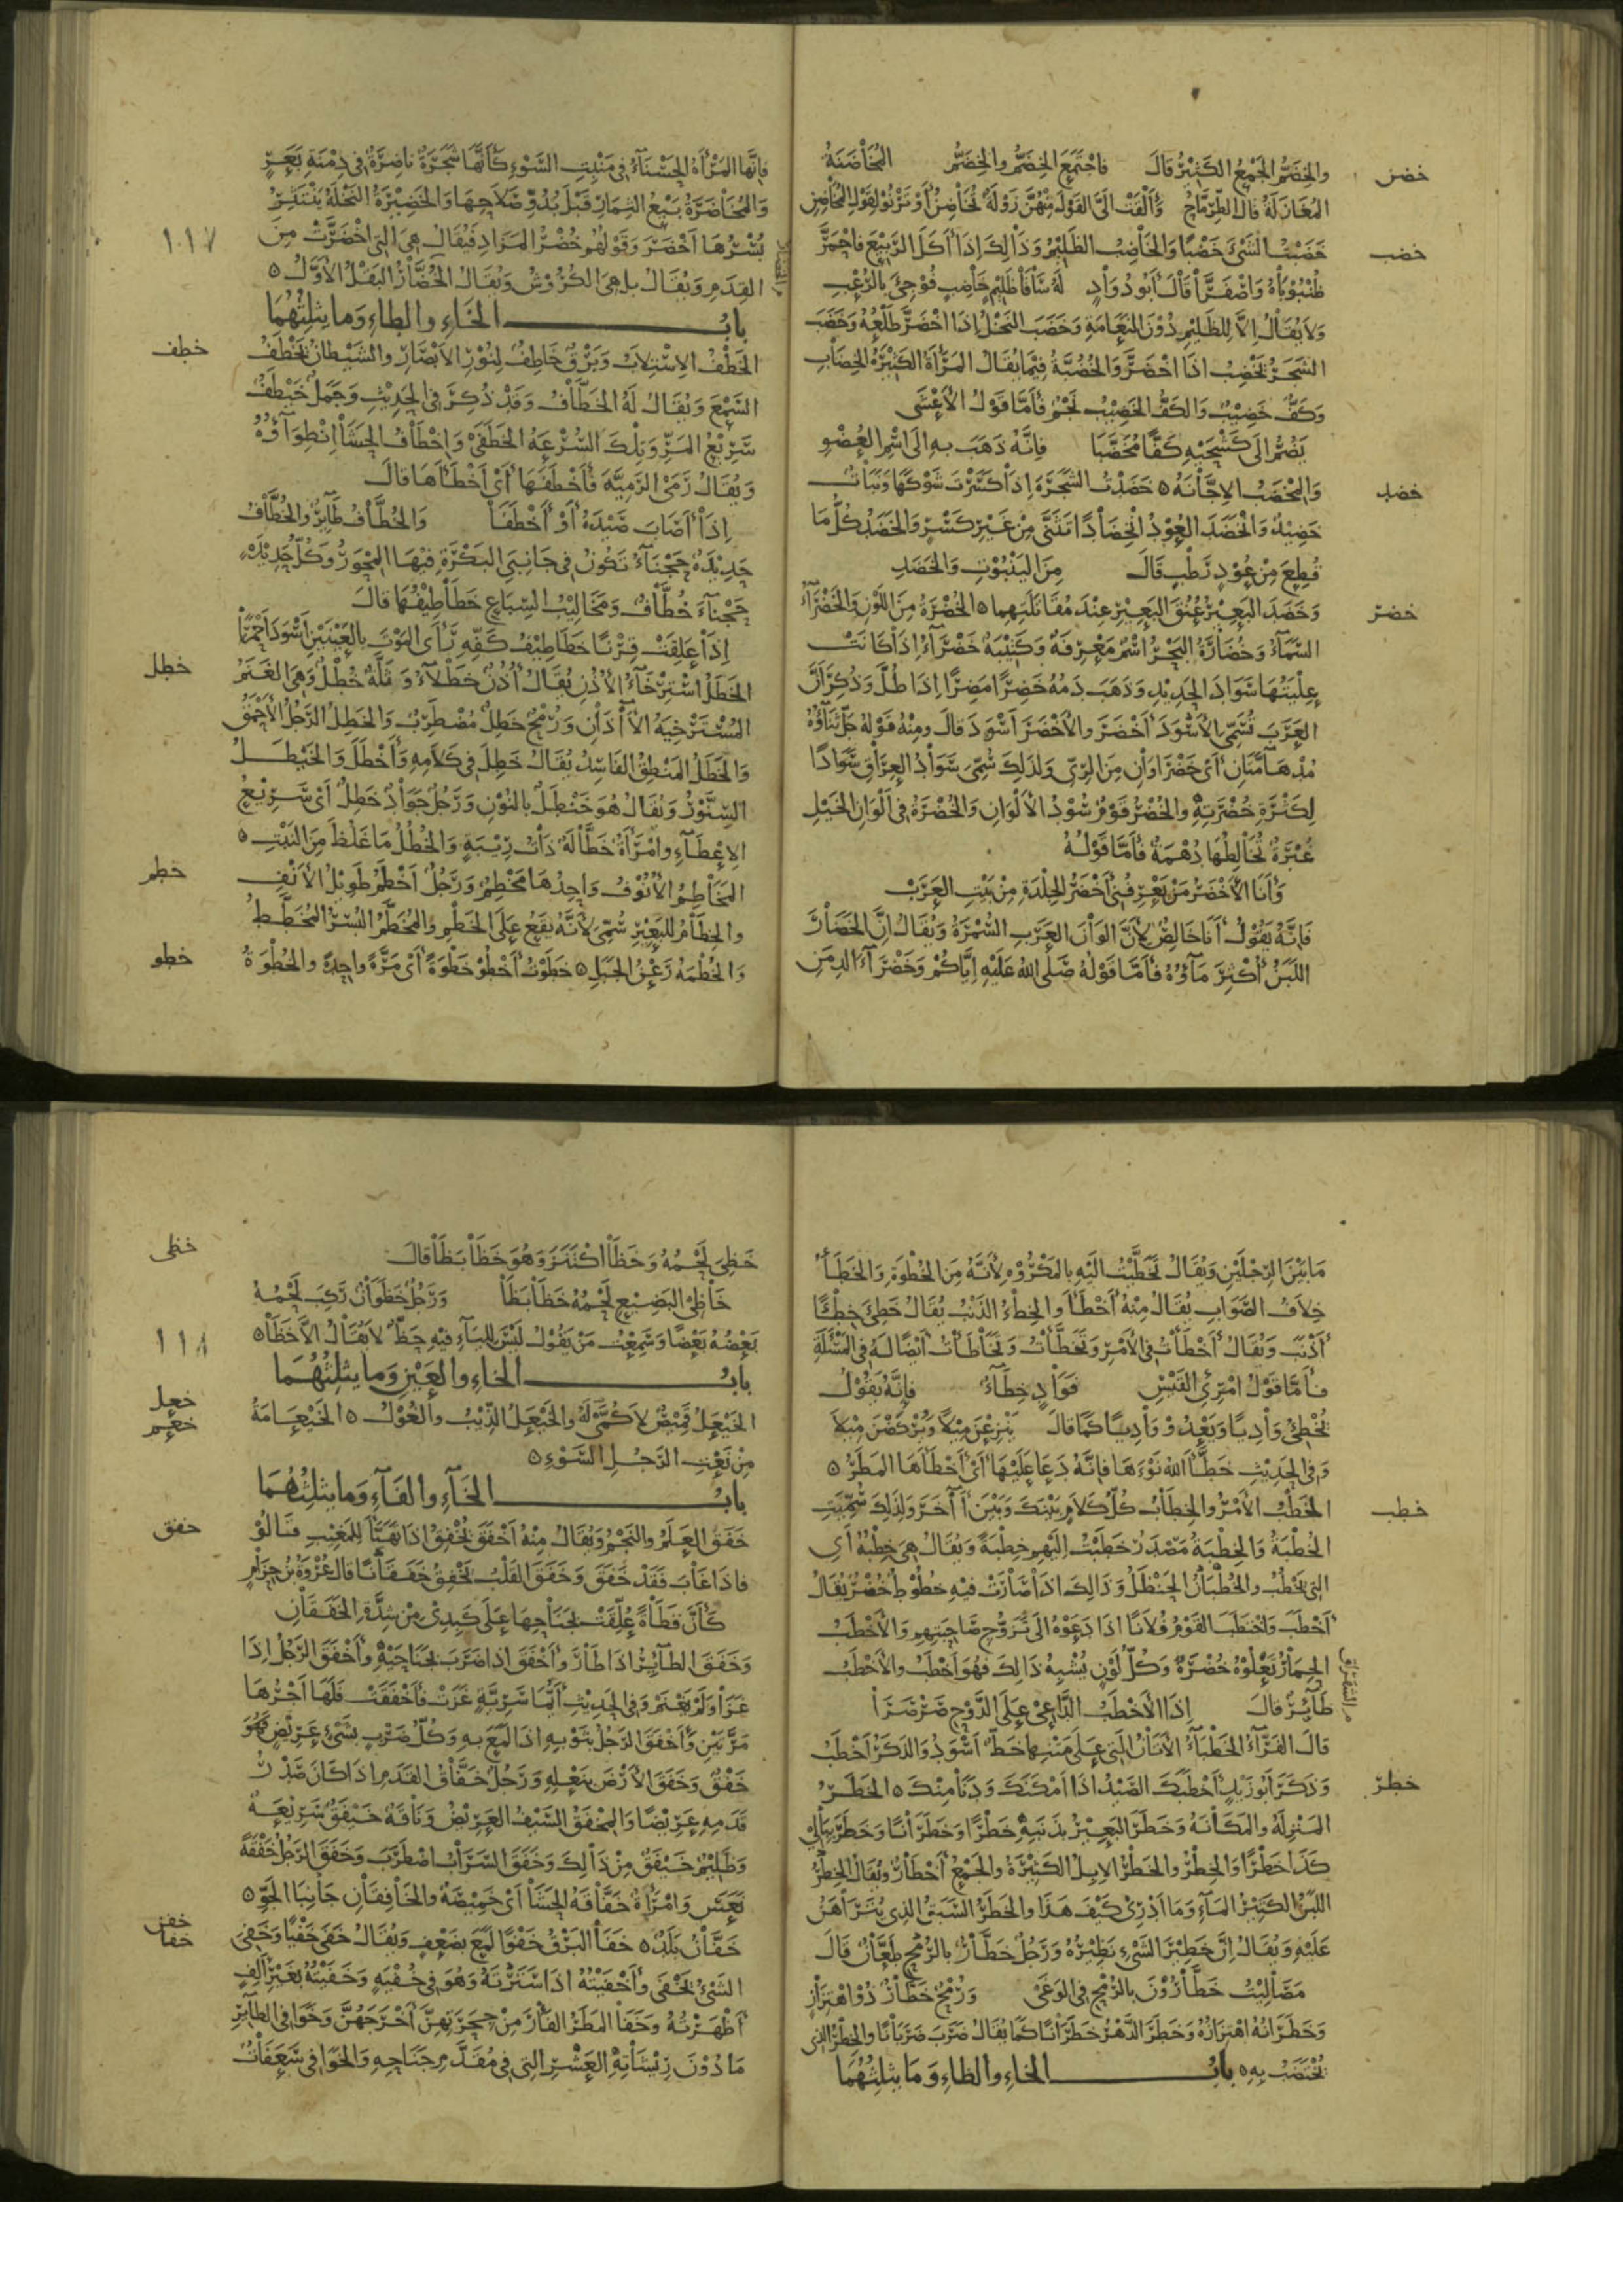 والخضم الجمع الكثير قال فاجتمع الخضم والخضم المخاضنة
خضن
المغازلة قال الطرماح وألقت إلي القول منهن زولة تخاضن أو ترنو لقول المخاضن
خضبت الشيء خضبا والخاضب الظليم وذلك إذا أكل الربيع فاحمر
خضب
ظنبوباه واصفرا قال أبو دواد له ساقا ظليم خاضب فوجئ بالرعب
ولا يقال إلا للظليم دون النعامة وخضب النخل إذا اخضر طلعه وخضب
الشجر يخضب إذا اخضر والخضبة فيما يقال المرأة الكثيرة الخضاب
وكف خضيب والكف الخضيب نجم فأما قول الأعشى
يضم إلى كشحيه كفا مخضبا فإنه ذهب به إلى اسم العضو
والمخضب الإجانة ٥ خضدت الشجرة إذا كسرت شوكها ونبات
خضد
خضيد وانخضد العود انخضادا تثنى من غير كسر والخضد كل ما
قطع من عود رطب قال من الينبوت والخضد
وخضد البعير عنق البعير عند مقاتلتهما ٥ الخضرة من اللون والخضراء
خضر
السماء وخضارة البحر اسم معرفة وكتيبة خضراء إذا كانت
عليتها سواد الحديد وذهب دمه خضرا مضرا إذا طل وذكر أن
العرب تسمي الأسود أخضر والأخضر أسود قال ومنه قوله جل ثناؤه
مدهامتان أي خضراوان من الري ولذلك سمي سواد العراق سوادا
لكثرة خضرته والخضر قوم سود الألوان والخضرة في ألوان الخيل
غبرة تخالطها دهمة فأما قوله
وأنا الأخضر من يعرفني أخضر الجلدة من بيت العرب
فإنه يقول أنا خالص لأن ألوان العرب السمرة ويقال إن الخضار
اللبن أكثر ماؤه فأما قوله صلى الله عليه إياكم وخضراء الدمن
فإنها المرأة الحسناء في منبت السوء كأنها شجرة ناضرة في دمنة بعر
والمخاضرة بيع الثمار قبل بدو صلاحها والخضيرة النخلة ينتثر
بسرها أخضر وقولهم خضر المزاد فيقال هي التي اخضرت من
١١٧
القدم ويقال بل هي الكروش ويقال الخضار البقل الأول ٥
باب الخاء والطاء وما يثلثهما
الخطف الاستلاب وبرق خاطف لنور الأبصار والشيطان يخطف
خطف
السمع ويقال له الخطاف وقد ذكر في الحديث وجمل خيطف
سريع المر وتلك السرعة الخطفى وإخطاف الحشا انطواؤه
ويقال رمى الرمية فأخطفها أي أخطأها قال
إذا أصاب صيده أو أخطفا والخطاف طائر والخطاف
حديدة حجناء تكون في جانبي البكرة فيها المحور وكل حديدة
حجناء خطاف ومخاليب السباع خطاطيفها قال
إذا علقت قرنا خطاطيف كفه رأى الموت بالعينين أسود أحمرا
الخطل استرخاء الأذن يقال أذن خطلاء وثلة خطل وهي الغنم
خطل
المسترخية الآذان ورمح خطل مضطرب والخطل الرجل الأحمق
والخطل المنطق الفاسد يقال خطل في كلامه وأخطل والخيطل
السنور ويقال هو خنطل بالنون ورجل جواد خطل أي سريع
الإعطاء وامرأة خطالة ذات ريبة والخطل ما غلظ من النبت ٥
المخاطم الأنوف واحدها مخطم ورجل أخطم طويل الأنف
خطم
والخطام للبعير سمي لأنه يقع على الخطم والمخطم البسر المخطط
والخطمة رعن الجبل ٥ خطوت أخطو خطوة أي مرة واحدة والخطوة
خطو
ما بين الرجلين ويقال تخطيت إليه بالمكروه لأنه من الخطوة والخطأ
خلاف الصواب يقال منه أخطأ والخطء الذنب يقال خطئ خطئا
أذنب ويقال أخطأت في الأمر وتخطأت وتخاطأت أيضا له في المسئلة
فأما قول امرئ القيس فواد خطاء فإنه يقول
تخطئ واديا ويعدو واديا كما قال ينزعن ميلا ويركضن ميلا
وفي الحديث خطأ الله نوءها فإنه دعا عليها أي أخطأها المطر ٥
الخطب الأمر والخطاب كل كلام بينك وبين آخر ولذلك سميت
خطب
الخطبة والخطبة مصدر خطبت إليهم خطبة ويقال هي خطبه أي
التي يخطب والخطبان الحنظل وذلك إذا صارت فيه خطوط خضر يقال
أخطب واختطب القوم فلانا إذا دعوه إلى تزوج صاحبتهم والأخطب
الحمار تعلوه خضرة وكل لون يشبه ذلك فهو أخطب والأخطب
طائر قال إذا الأخطب الداعي على الدوح صرصرا
الشقراق
قال الفراء الخطباء الأتان التي على متنها خط أسود والذكر أخطب
وذكر أبو زيد أخطبك الصيد إذا أمكنك ودنا منك ٥ الخطر
خطر
المنزلة والمكانة وخطر البعير بذنبه خطرا وخطرانا وخطر ببالي
كذا خطرا والخطر والخطر الإبل الكثيرة والجمع أخطار ويقال الخطر
اللبن الكثير الماء وما أدري كيف هذا والخطر السبق الذي يتراهن
عليه ويقال إن خطير الشيء نظيره ورجل خطار بالرمح طعان قال
مصاليت خطارون بالرمح في الوغى ورمح خطار ذو اهتزاز
وخطرانه اهتزازه وخطر الدهر خطرانا كما يقال ضرب ضربانا والخطر الذي
تختضب به ٥ باب الخاء والظاء وما يثلثهما
خظي لحمه وخظا اكتنز وهو خظا بظا قال
خظى
خاظي البضيع لحمه خظا بظا ورجل خظوان ركب لحمه
بعضه بعضا وسمعت من يقول ليس للياء فيه حظ لا يقال إلا خظا ٥
١١٨
باب الخاء والعين وما يثلثهما
الخيعل قميص لا كمي له والخيعل الذئب والغول ٥ الخيعامة
خعل
خعم
من نعت الرجل السوء ٥
باب الخاء والفاء وما يثلثهما
خفق العلم والنجم ويقال منه أخفق يخفق إذا تهيأ للمغيب قالوا
خفق
فإذا غاب فقد خفق وخفق القلب يخفق خفقانا قال عروة بن حزام
كأن قطاة علقت بجناحها على كبدي من شدة الخفقان
وخفق الطائر إذا طار وأخفق إذا ضرب بجناحيه وأخفق الرجل إذا
غزا ولم يغنم وفي الحديث أيما سرية غزت فأخفقت فلها أجرها
مرتين وأخفق الرجل بثوبه إذا لمع به وكل ضرب بشيء عريض فهو
خفق وخفق الأرض بنعله ورجل خفاق القدم إذا كان صدر
قدمه عريضا والمخفق السيف العريض وناقة خيفق سريعة
وظليم خيفق من ذلك وخفق السراب اضطرب وخفق الرجل خفقة
نعس وامرأة خفاقة الحشا أي خميصة والخافقان جانبا الجو ٥
خفان بلد ٥ خفا البرق خفوا لمع بضعف ويقال خفى خفيا وخفي
خفن
خفا
الشيء يخفى وأخفيته إذا سترته وهو في خفية وخفيته بغير ألف
أظهرته وخفا المطر الفأر من جحرتهن أخرجهن وخوافي الطائر
ما دون ريشاته العشر التي في مقدم جناحه والخوافي سعفات